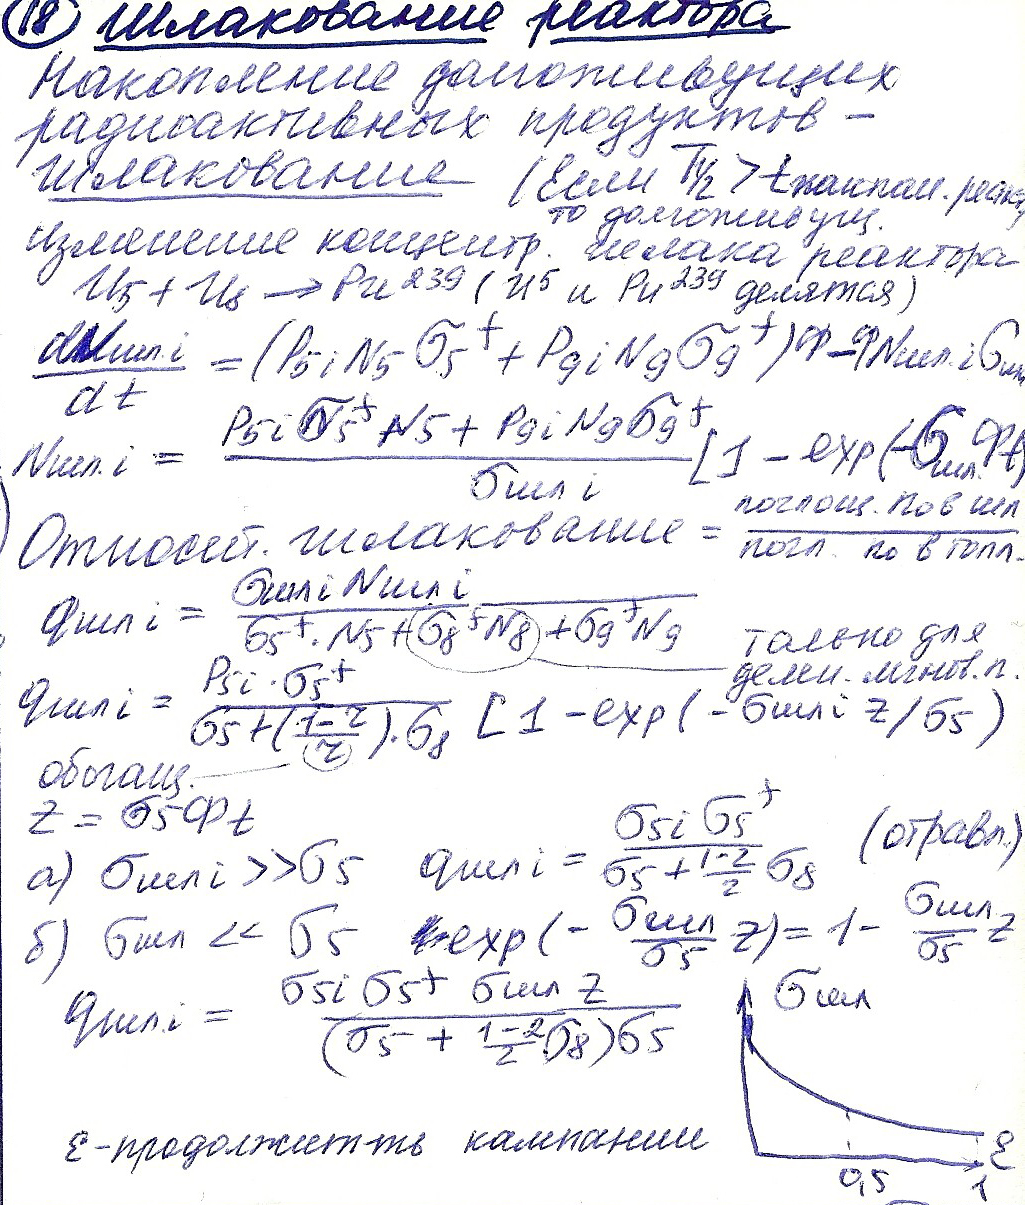 18 Шлакование реактора
Накопление долгоживущих
радиоактивных продуктов –
шлакование (Если T½ > t кампан. реакт,
то долгоживущ.
Изменение концентр. шлака реактора
U₅ + U₈ → Pu²³⁹ (U⁵ и Pu²³⁹ делятся)
dNшл.i/dt = (P₅i N₅ σ₅ᶠ + P₉i N₉ σ₉ᶠ) Ф – Ф Nшл.i σшл
Nшл.i = (P₅i σ₅ᶠ N₅ + P₉i N₉ σ₉ᶠ)/σшл i [1 – exp(–σшл. Ф t)
Относит. шлакование = поглощ. n₀ в шл / погл. n₀ в топл.
qшл i = σшл i Nшл i / σ₅ᶠ·N₅ + σ₈ᶠN₈ + σ₉ᶠN₉
только для
делен. мгнов. п.
qшл i = P₅i·σ₅ᶠ / σ₅+(1–z/z)·σ₈ [1 – exp(–σшл i z/σ₅)
обогащ.
z = σ₅Фt
а) σшл i >> σ₅ qшл i = σ₅i σ₅ᶠ / σ₅ + 1–z/z σ₈ (отравл.)
б) σшл << σ₅ exp(– σшл/σ₅ z) = 1 – σшл/σ₅ z
qшл.i = σ₅i σ₅ᶠ σшл z / (σ₅ + 1–z/z σ₈)σ₅
σшл
ε-продолжит-ть кампании
ε
0,5 1